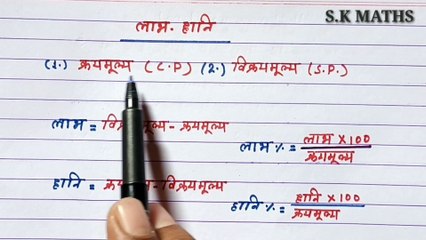 S.K MATHS
लाभ-हानि
(1.) क्रयमूल्य (C.P) (2.) विक्रयमूल्य (S.P.)
लाभ = विक्रयमूल्य - क्रयमूल्य
लाभ % = लाभ × 100
क्रयमूल्य
हानि = -विक्रयमूल्य
हानि % = हानि × 100
क्रयमूल्य